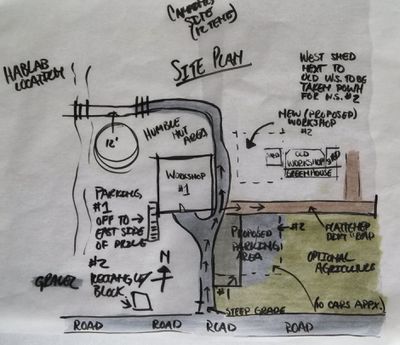 CAMPING
SITE
SITE PLAN
HABLAB
LOCATION
WEST SHED
NEXT TO
OLD W.S. TO BE
TAKEN DOWN
FOR W.S. #2
NEW (PROPOSED)
WORKSHOP
#2
HUMBLE
HUT AREA
12'
SHED
OLD
WORKSHOP
GREENHOUSE
WORKSHOP
#1
PARKING
#1
OFF TO →
EAST SIDE
OF DRIVE
#2
PROPOSED
PARKING
AREA
FLATTENED
DIRT ROAD
OPTIONAL
AGRICULTURE
N
GRAVEL
RECTANGLE/
BLOCK
#1
(10 CARS APPX.)
STEEP GRADE
ROAD ROAD ROAD ROAD